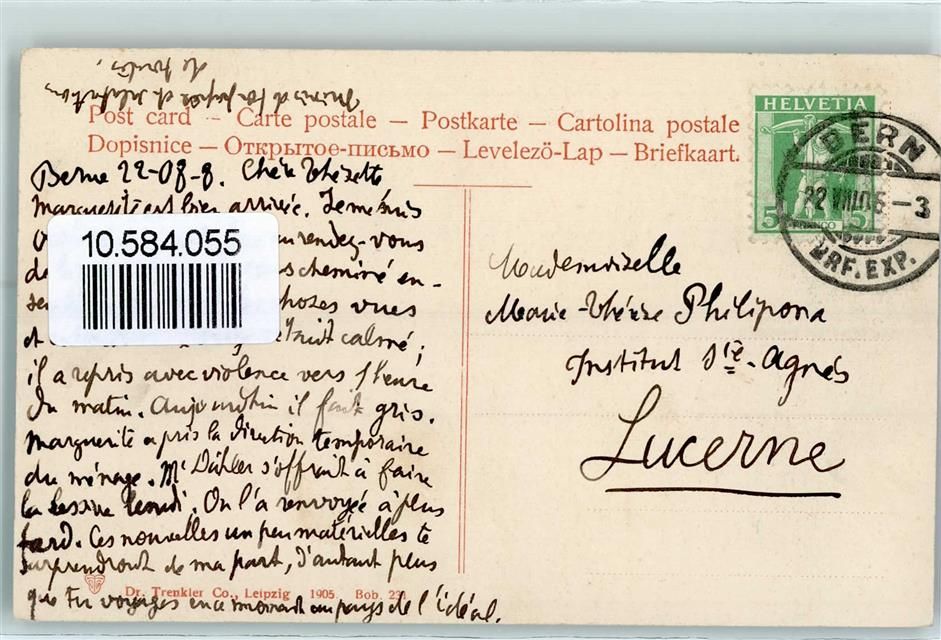 de toutes.
Post card – Carte postale – Postkarte – Cartolina postale
Dopisnice – Открытое-письмо – Levelezö-Lap – Briefkaart.
HELVETIA
5 5
FRANCO
BERN
22 VIII 08 – 3
BRF. EXP.
Berne 22-08-8. Chère Thérèse
Marguerite est bien arrivée. Je me suis
rendez-vous
10.584.055
cheminé en-
choses vues
et était calmé ;
il a repris avec violence vers 1 heure
du matin. Aujourd'hui il fait gris.
Marguerite a pris la direction temporaire
du ménage. Mᵉ Dähler s'offrait à faire
la lessive lundi. On l'a renvoyée à plus
tard. Ces nouvelles un peu matérielles te
surprendront de ma part, d'autant plus
que tu voyages en ce moment au pays de l'idéal.
Mademoiselle
Marie-Thérèse Philipona
Institut Sᵗᵉ-Agnès
Lucerne
Dr. Trenkler Co., Leipzig 1905. Bob. 23